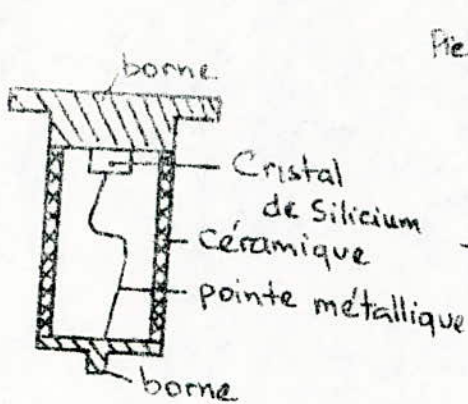 borne
Cristal
de Silicium
Céramique
pointe métallique
borne